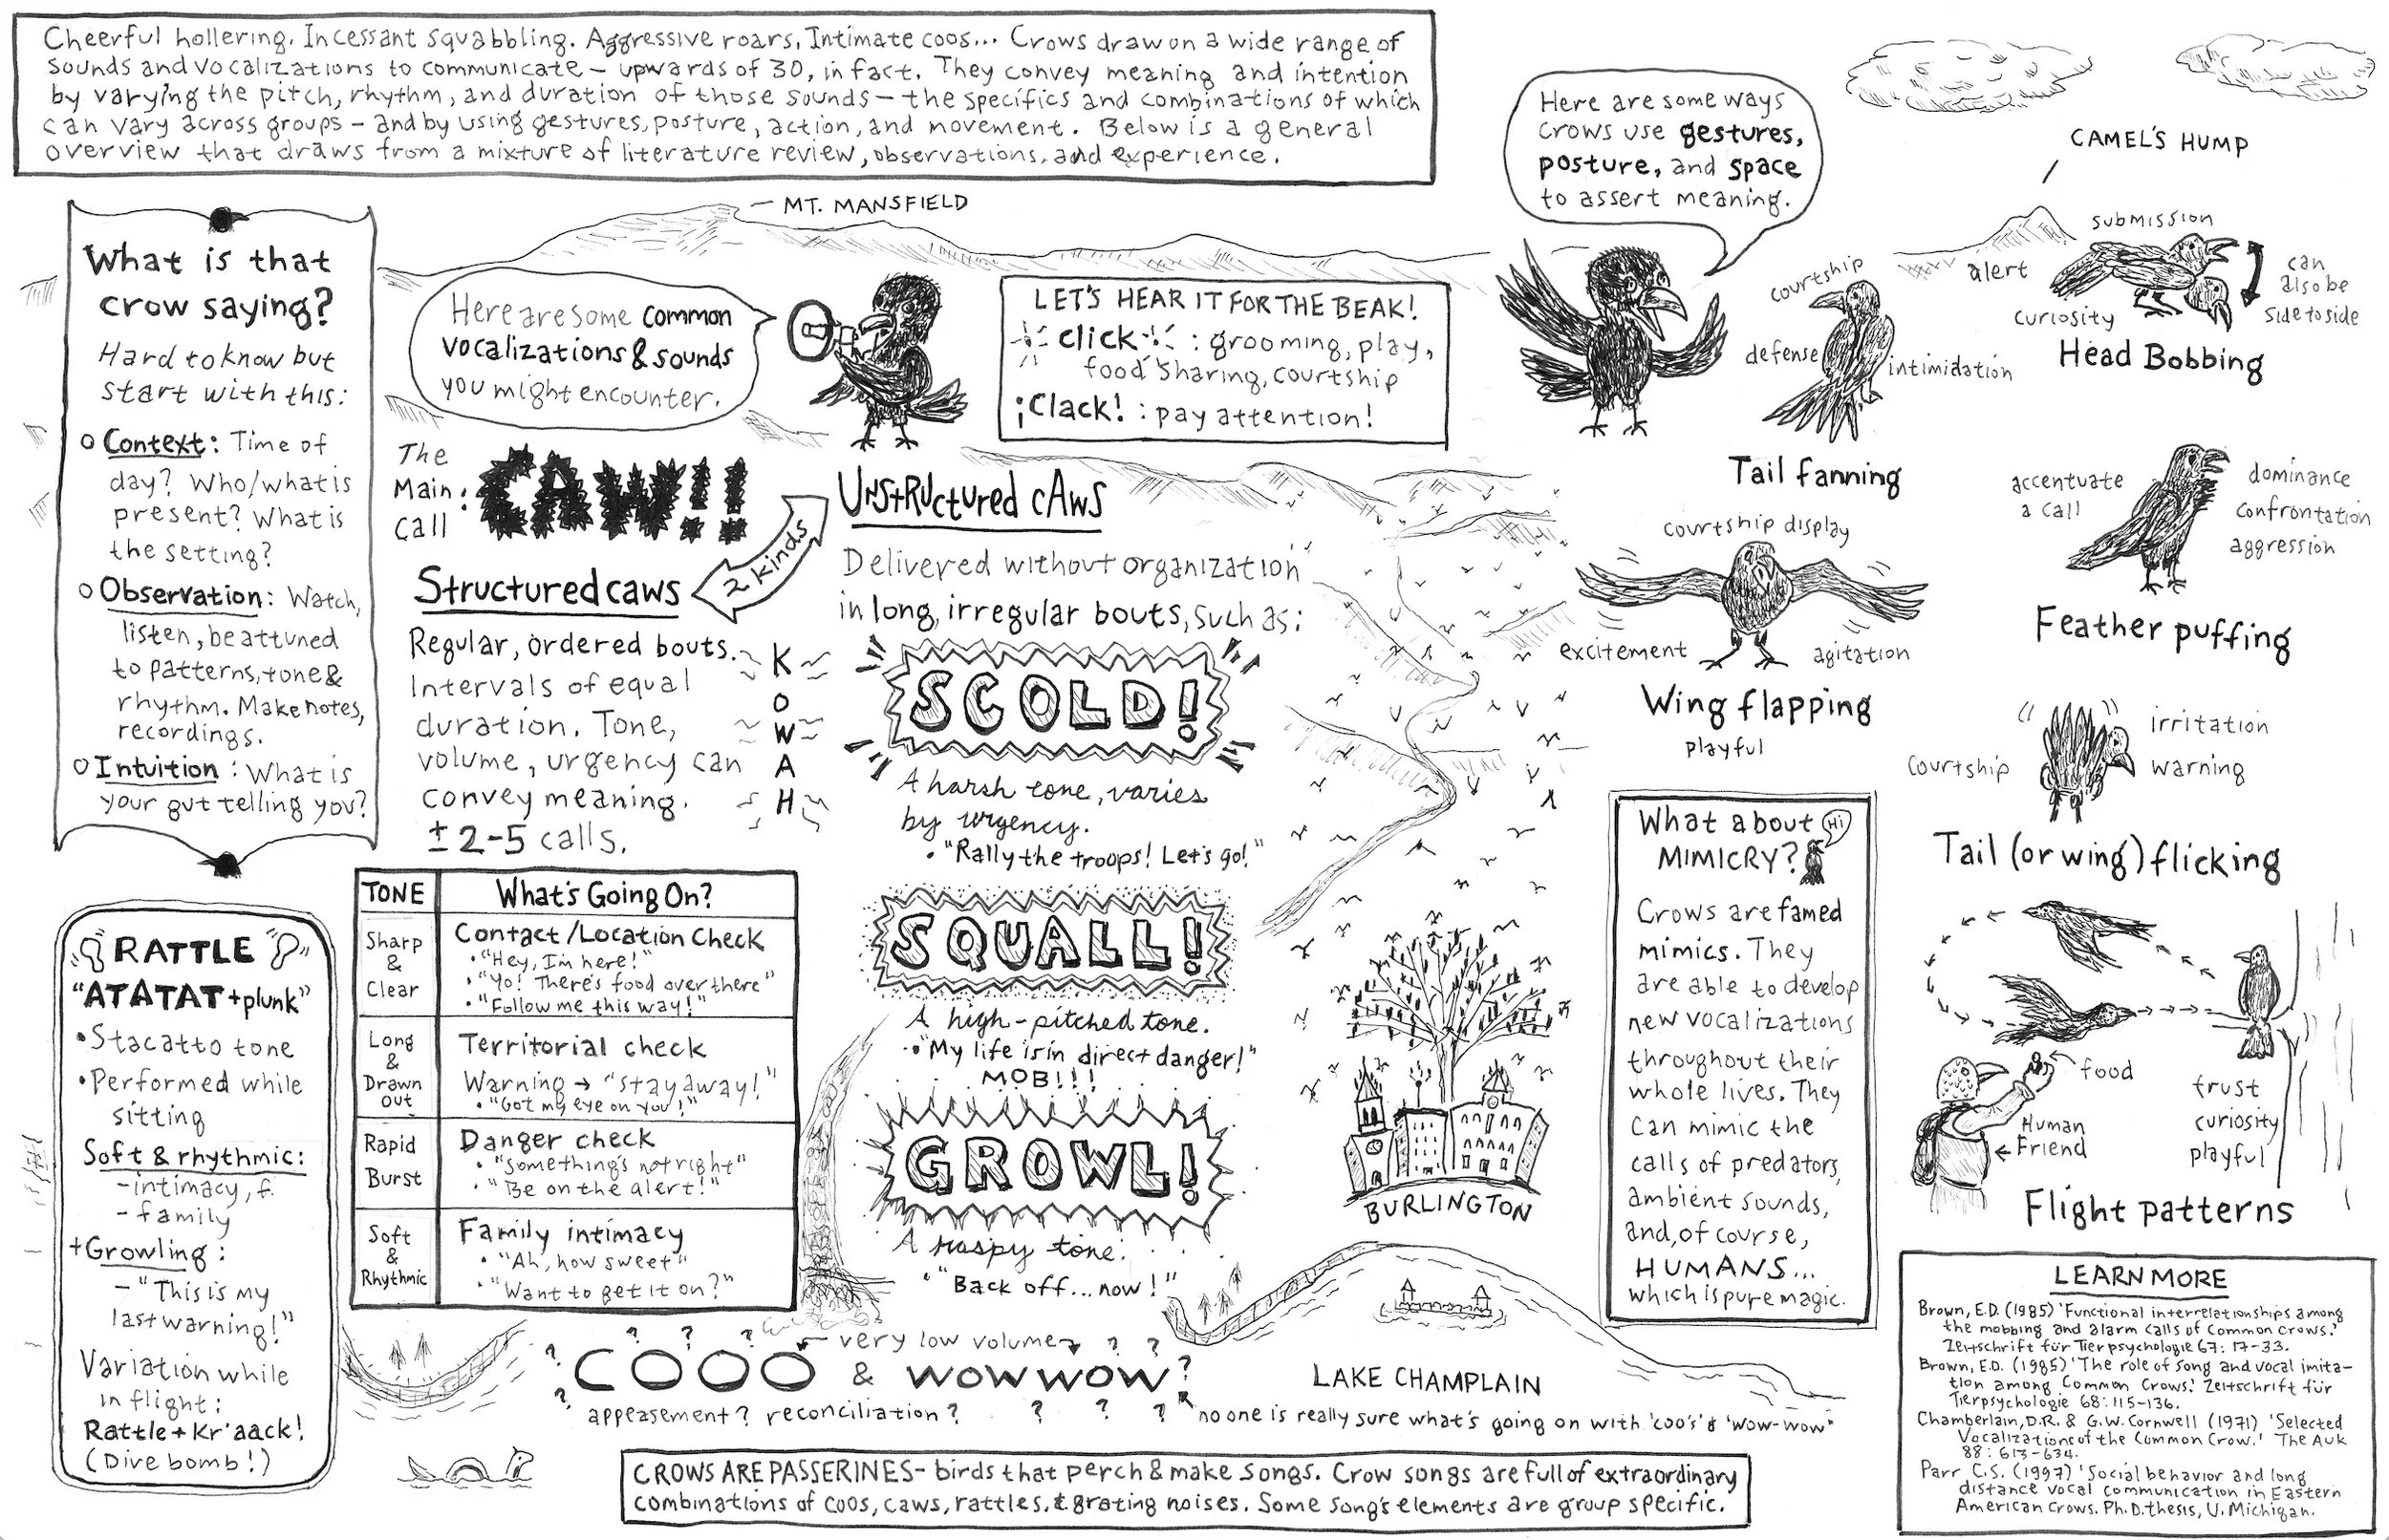 Cheerful hollering. Incessant squabbling. Aggressive roars. Intimate coos... Crows draw on a wide range of
sounds and vocalizations to communicate – upwards of 30, in fact. They convey meaning and intention
by varying the pitch, rhythm, and duration of those sounds – the specifics and combinations of which
can vary across groups – and by using gestures, posture, action, and movement. Below is a general
overview that draws from a mixture of literature review, observations, and experience.
What is that
crow saying?
Hard to know but
start with this:
Context: Time of
day? Who/what is
present? What is
the setting?
Observation: Watch,
listen, be attuned
to patterns, tone &
rhythm. Make notes,
recordings.
Intuition: What is
your gut telling you?
RATTLE
"ATATAT + plunk"
• Stacatto tone
• Performed while
sitting
Soft & rhythmic:
- intimacy, f.
- family
+ Growling:
- "This is my
last warning!"
Variation while
in flight:
Rattle + Kr'aack!
(Dive bomb!)
MT. MANSFIELD
Here are some common
vocalizations & sounds
you might encounter.
LET'S HEAR IT FOR THE BEAK!
click: grooming, play,
food sharing, courtship
¡Clack!: pay attention!
The
Main
Call:
CAW!!
2 kinds
Structured caws
Regular, ordered bouts.
Intervals of equal
duration. Tone,
volume, urgency can
convey meaning.
± 2-5 calls.
KOWAH
TONE
What's Going On?
Sharp
&
Clear
Contact/Location Check
• "Hey, I'm here!"
• "Yo! There's food over there"
• "Follow me this way!"
Long
&
Drawn
out
Territorial check
Warning → "stay away!"
• "Got my eye on you!"
Rapid
Burst
Danger check
• "Something's not right"
• "Be on the alert!"
Soft
&
Rhythmic
Family intimacy
• "Ah, how sweet"
• "Want to get it on?"
UnstRUctured cAws
Delivered without organization
in long, irregular bouts, such as:
SCOLD!
A harsh tone, varies
by urgency.
• "Rally the troops! Let's go!"
SQUALL!
A high-pitched tone.
• "My life is in direct danger!"
MOB!!!
GROWL!
A raspy tone.
• "Back off... now!"
? ? ? ? ?
very low volume
? ? ?
COOO & WOWWOW?
appeasement? reconciliation? ? ? ?
no one is really sure what's going on with 'coo's' & 'wow-wow'
CROWS ARE PASSERINES – birds that perch & make songs. Crow songs are full of extraordinary
combinations of coos, caws, rattles, & grating noises. Some song's elements are group specific.
BURLINGTON
LAKE CHAMPLAIN
Here are some ways
crows use gestures,
posture, and space
to assert meaning.
CAMEL'S HUMP
courtship
defense
intimidation
Tail fanning
submission
alert
can
also be
side to side
curiosity
Head Bobbing
courtship display
excitement
agitation
Wing flapping
playful
accentuate
a call
dominance
confrontation
aggression
Feather puffing
irritation
warning
courtship
Tail (or wing) flicking
food
Human
Friend
trust
curiosity
playful
Flight patterns
What about
MIMICRY?
Hi
Crows are famed
mimics. They
are able to develop
new vocalizations
throughout their
whole lives. They
can mimic the
calls of predators,
ambient sounds,
and, of course,
HUMANS...
which is pure magic.
LEARN MORE
Brown, E.D. (1985) 'Functional interrelationships among
the mobbing and alarm calls of Common Crows.'
Zeitschrift für Tierpsychologie 67: 17-33.
Brown, E.D. (1985) 'The role of song and vocal imita-
tion among Common Crows.' Zeitschrift für
Tierpsychologie 68: 115-136.
Chamberlain, D.R. & G.W. Cornwell (1971) 'Selected
Vocalizations of the Common Crow.' The Auk
88: 613-634.
Parr C.S. (1997) 'Social behavior and long
distance vocal communication in Eastern
American Crows. Ph.D. thesis, U. Michigan.